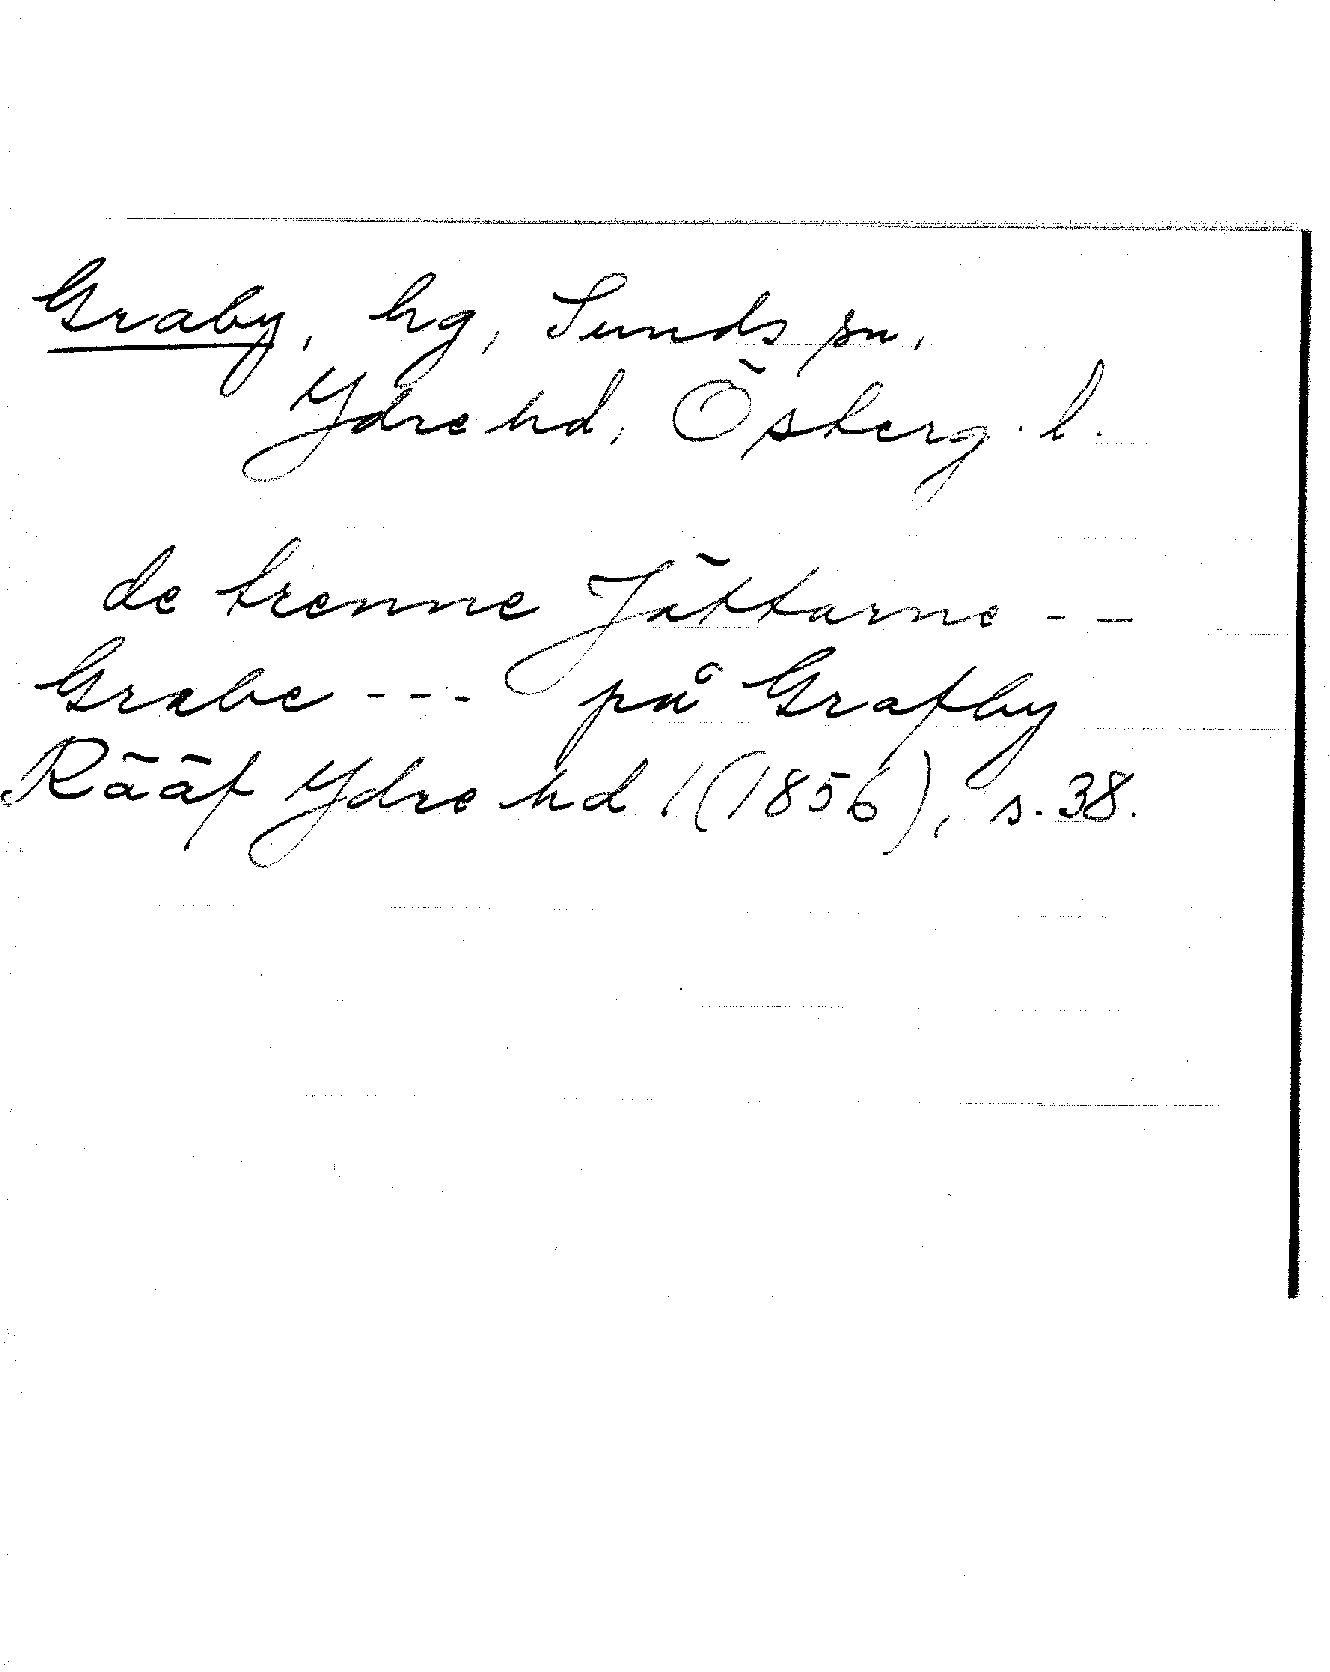 Graby, hg, Sunds sn,
Ydre hd, Österg. l.
de trenne Jättarne - -
Grabe - - - på Grafby
Rääf Ydre hd 1 (1856), s. 38.